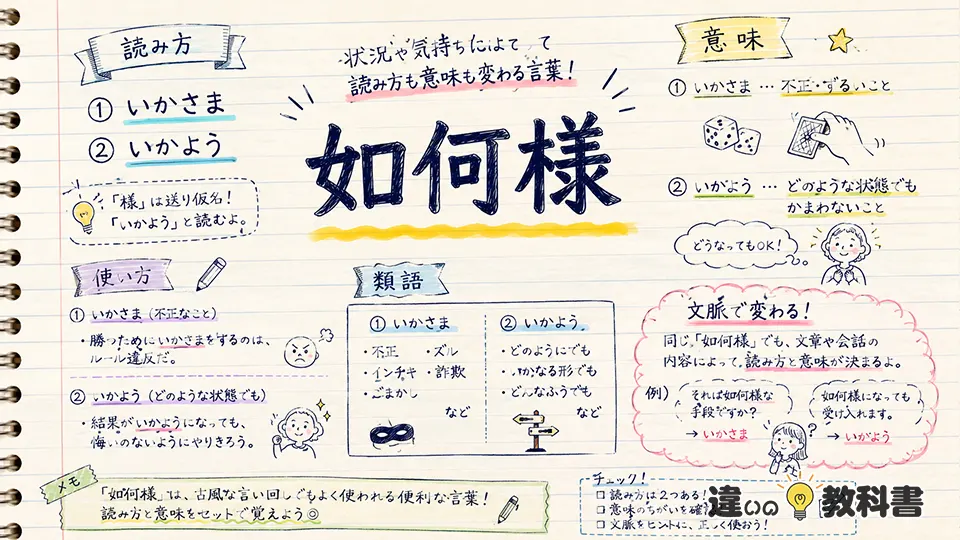 読み方
① いかさま
② いかよう
「様」は送り仮名!
「いかよう」と読むよ。
状況や気持ちによてって
読み方も意味も変わる言葉!
如何様
意味
① いかさま … 不正・ずるいこと
② いがよう … どのような状態でも
かまわないこと
どうなってもOK!
使い方
① いかさま(不正なこと)
・勝っためにいかさまをするのは、
ルール違反だ。
② いかよう(どのような状態でも)
・結果がいかようになっても、
悔いのないようにやりきろう。
類語
① いかさま
・不正 ・ズル
・インチキ ・詐欺
・ごまかし
など
② いかよう
・どのようにでも
・いかなる形でも
・どんなふうでも
など
文脈で変わる!
同じ「如何様」でも、文章や会話の
内容によって、読み方と意味が決まるよ。
例)
それは如何様な
手段ですか?
→ いかさま
如何様になっても
受け入れます。
→ いがよう
?
メモ
「如何様」は、古風な言い回しでもよく使われる便利な言葉!
読み方と意味をセットで覚えよう◎
チェック!
□ 読み方は2つある!
□ 意味のちがいを確
□ 文脈をヒントに、正しく使おう!
違いの教科書